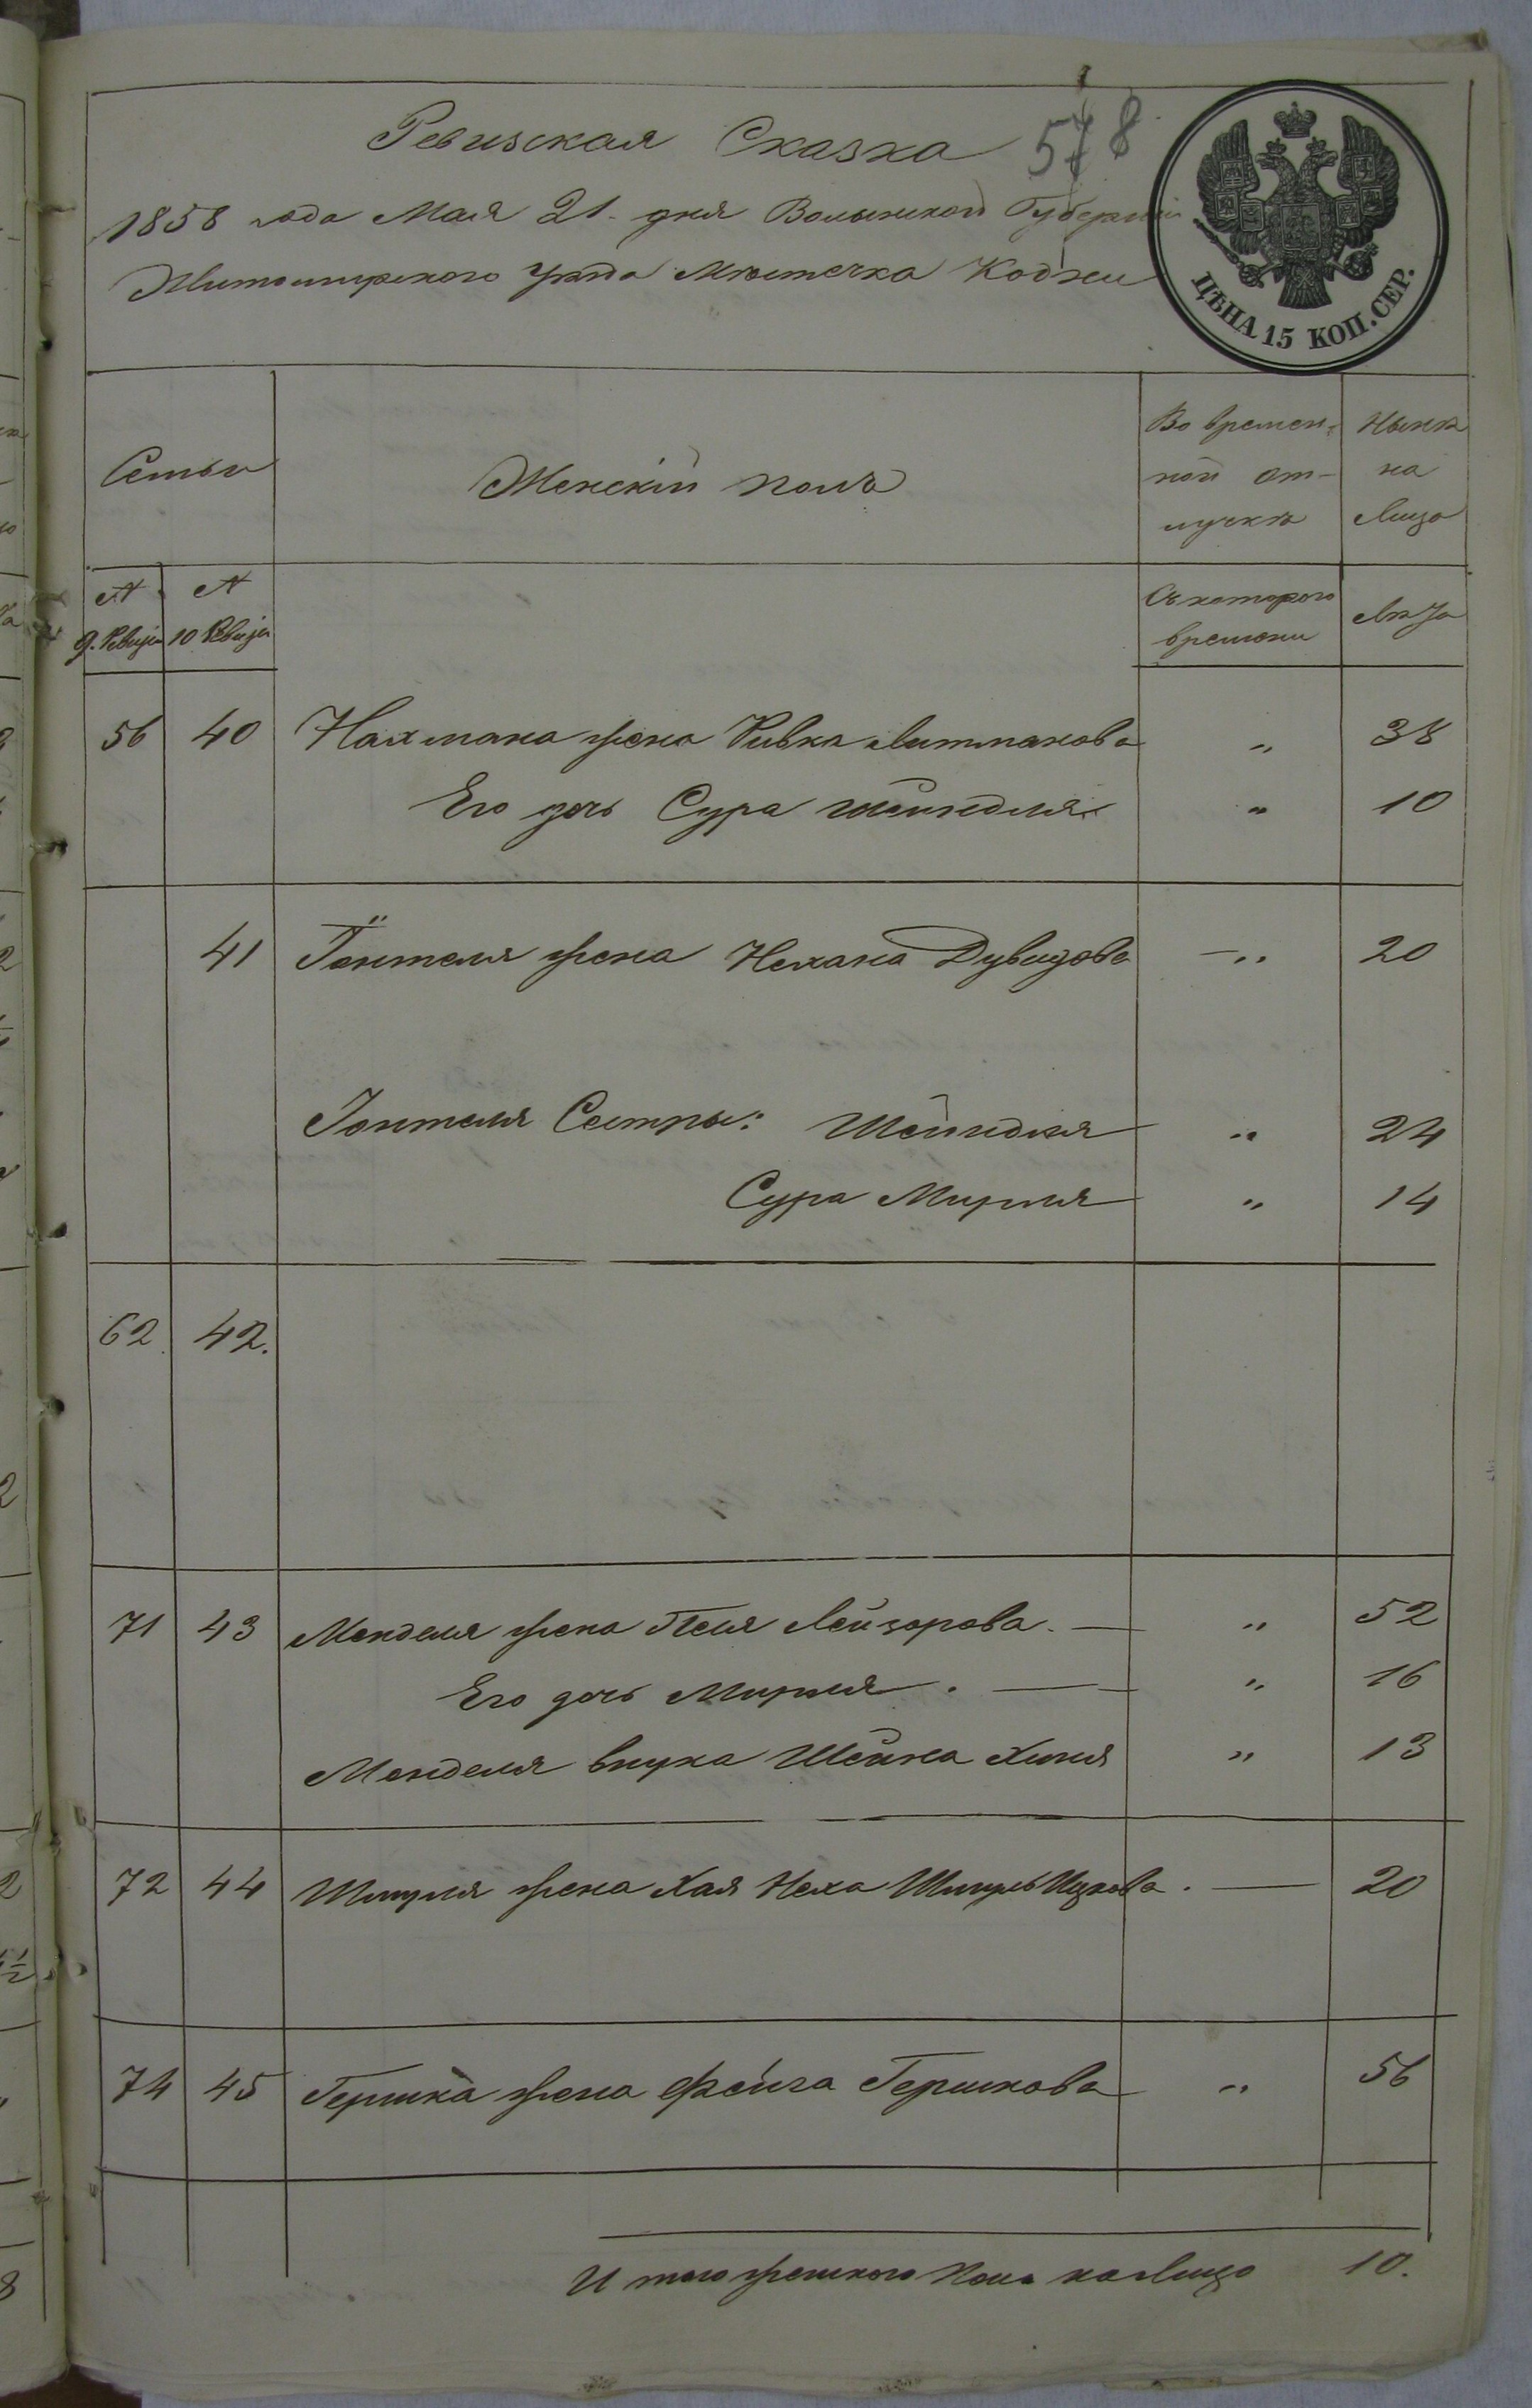 Ревизская Сказка 578
1858 года Мая 21 дня Волынской Губерніи
Житомирского Уезда Местечка Кодни
ЦѢНА 15 КОП. СЕР.
Семьи
Женскій полъ
Во времен-
ной от-
лучкѣ
Нынѣ
на
Лицо
№
9. Ревизіи
№
10 Ревизіи
Съ котораго
времени
Лѣта
56 40 Нахмана жена Ривка Литманова " 38
Его дочь Сура Шейндля " 10
41 жена Нехама Дувидова " 20
Сестры: Шейндля " 24
Сура Мирля " 14
62 42.
71 43 Менделя жена Песя Лейзорова. " 52
Его дочь Мирля. " 16
Менделя внука Шейна Хиня " 13
72 44 Шмуля жена Хая Неха Шмуль Ицкова. 20
74 45 Гершка жена Фейга Гершкова " 56
Итого женского пола на Лицо 10.